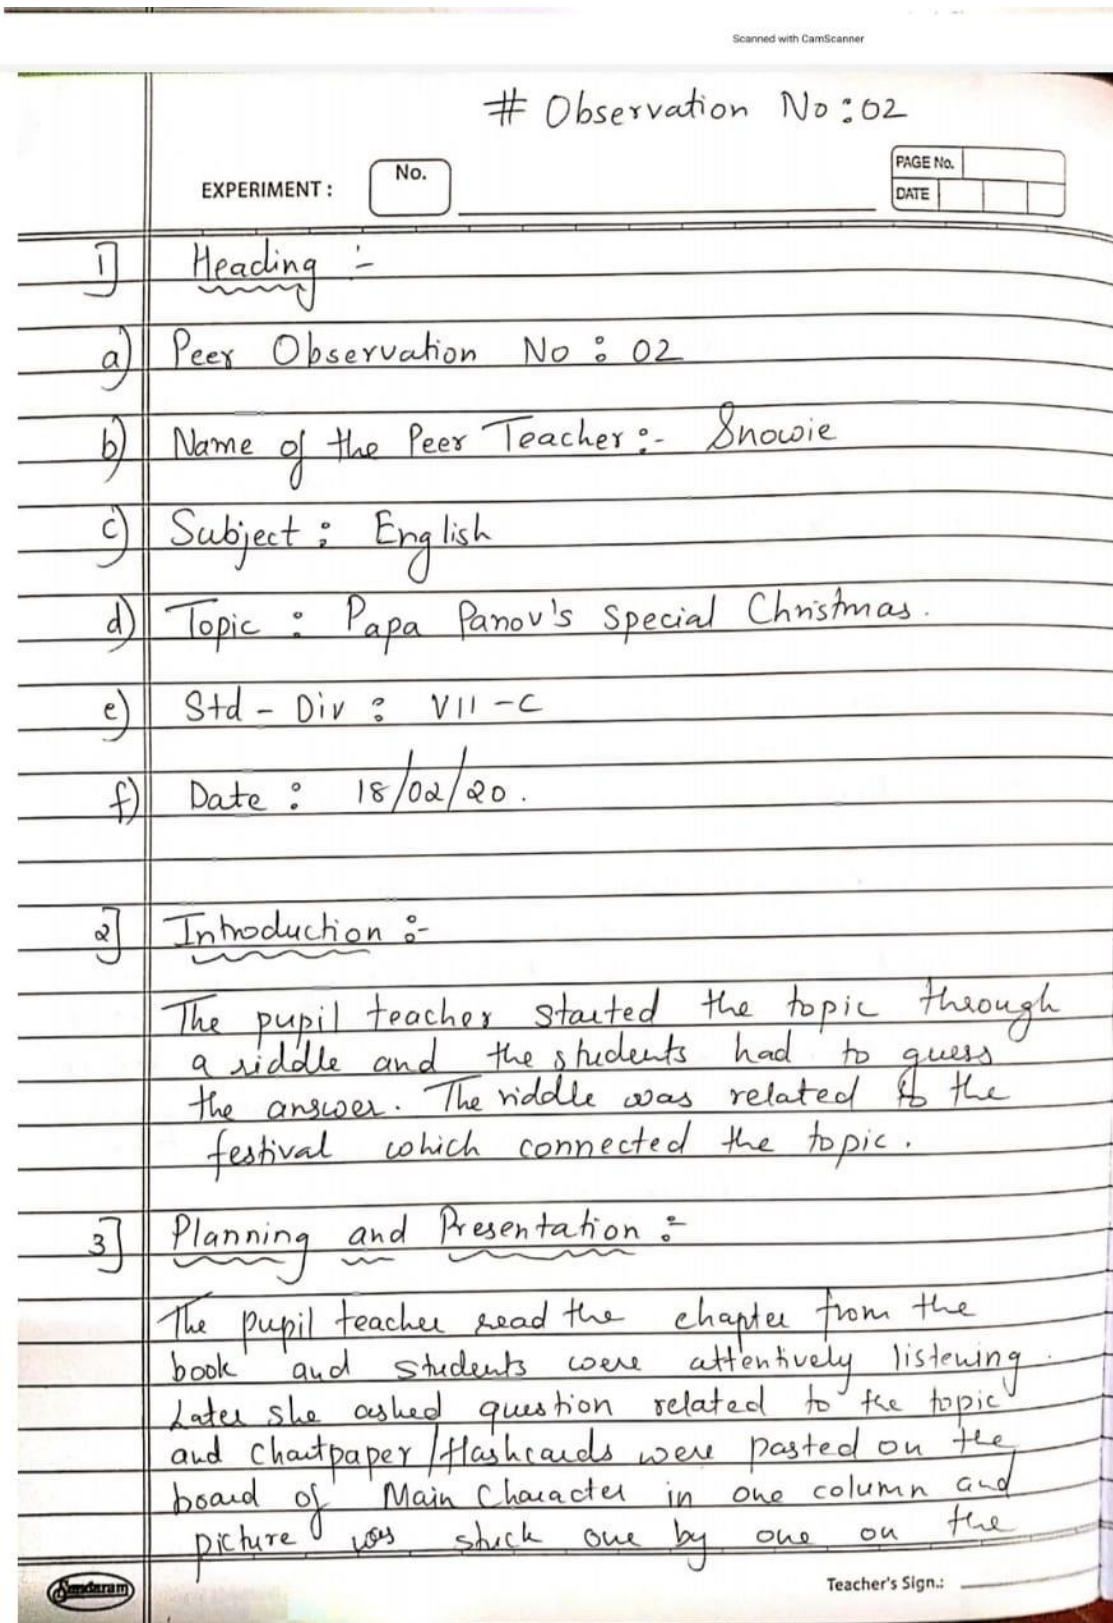 Scanned with CamScanner
# Observation No : 02
EXPERIMENT : No.
PAGE No.
DATE
1] Heading :-
a) Peer Observation No : 02
b) Name of the Peer Teacher :- Snowie
c) Subject : English
d) Topic : Papa Panov's Special Christmas.
e) Std - Div : VII - C
f) Date : 18/02/20.
2] Introduction :-
The pupil teacher started the topic through
a riddle and the students had to guess
the answer. The riddle was related to the
festival which connected the topic.
3] Planning and Presentation :-
The pupil teacher read the chapter from the
book and students were attentively listening.
Later she asked question related to the topic
and Chartpaper/flashcards were pasted on the
board of Main Character in one column and
picture was stuck one by one on the
Sundaram
Teacher's Sign.: